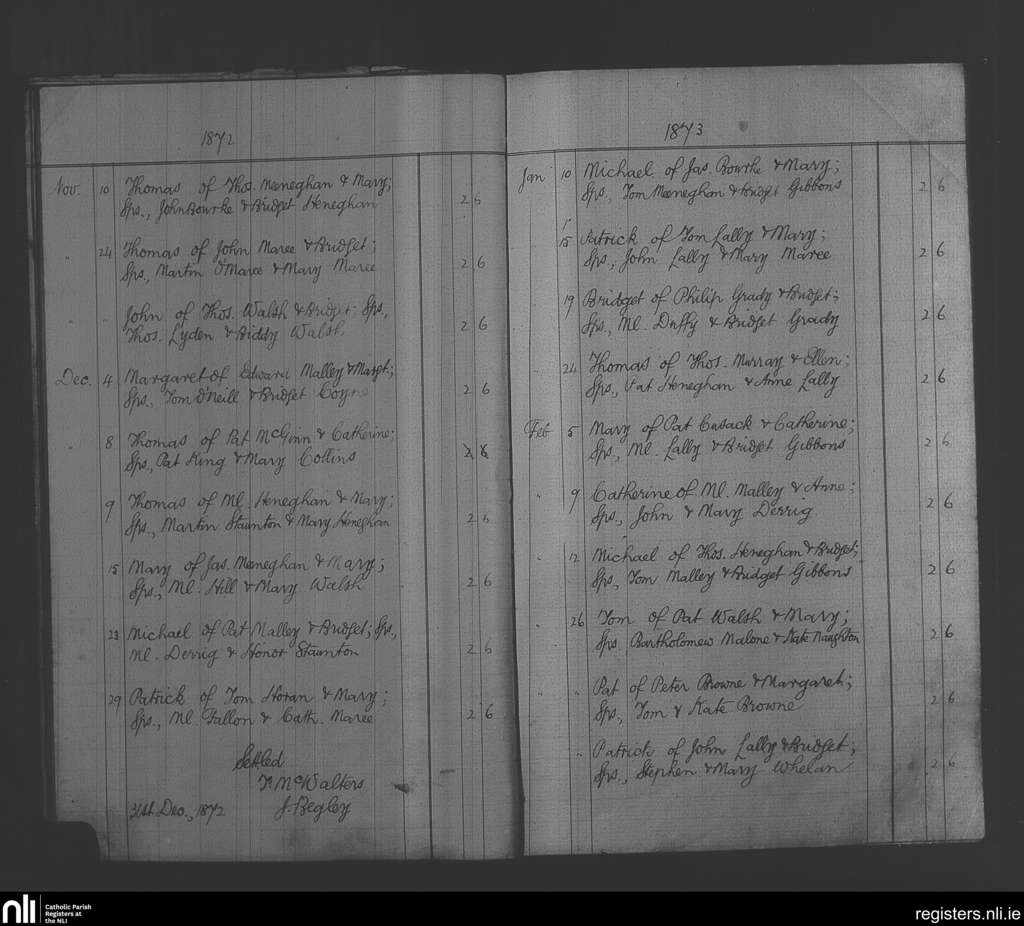 1872
Nov. 10 Thomas of Thos. Meeneghan & Mary;
Sps., John Bourke & Bridget Heneghan 2 6
" 24 Thomas of John Maree & Bridget;
Sps., Martin O'Maree & Mary Maree 2 6
" " John of Thos. Walsh & Bridget; Sps,
Thos. Lyden & Biddy Walsh 2 6
Dec. 4 Margaret of Edward Malley & Margt;
Sps., Tom O'Neill & Bridget Coyne 2 6
" 8 Thomas of Pat McGinn & Catherine;
Sps., Pat King & Mary Collins 2 6
9 Thomas of Ml. Heneghan & Mary;
Sps., Martin Staunton & Mary Heneghan 2 6
15 Mary of Jas. Meeneghan & Mary;
Sps., Ml. Hill & Mary Walsh 2 6
23 Michael of Pat Malley & Bridget; Sps.,
Ml. Derrig & Honor Staunton 2 6
29 Patrick of Tom Horan & Mary;
Sps., Ml Fallon & Cath. Maree 2 6
Settled
McWalters
31st Dec., 1872 J. Begley
1873
Jan 10 Michael of Jas. Bourke & Mary;
Sps., Tom Meeneghan & Bridget Gibbons 2 6
15 Patrick of Tom Lally & Mary;
Sps., John Lally & Mary Maree 2 6
19 Bridget of Philip Grady & Bridget;
Sps., Ml. Duffy & Bridget Grady 2 6
" 24 Thomas of Thos. Murray & Ellen;
Sps., Pat Heneghan & Anne Lally 2 6
Feb 5 Mary of Pat Cusack & Catherine;
Sps., Ml. Lally & Bridget Gibbons 2 6
" 9 Catherine of Ml. Malley & Anne;
Sps., John & Mary Derrig 2 6
" 12 Michael of Thos. Heneghan & Bridget;
Sps., Tom Malley & Bridget Gibbons 2 6
" 26 Tom of Pat Walsh & Mary;
Sps. Bartholomew Malone & Kate Naughton 2 6
" " Pat of Peter Browne & Margaret;
Sps., Tom & Kate Browne 2 6
" Patrick of John Lally & Bridget;
Sps., Stephen & Mary Whelan 2 6
nli Catholic Parish
Registers at
the NLI
registers.nli.ie